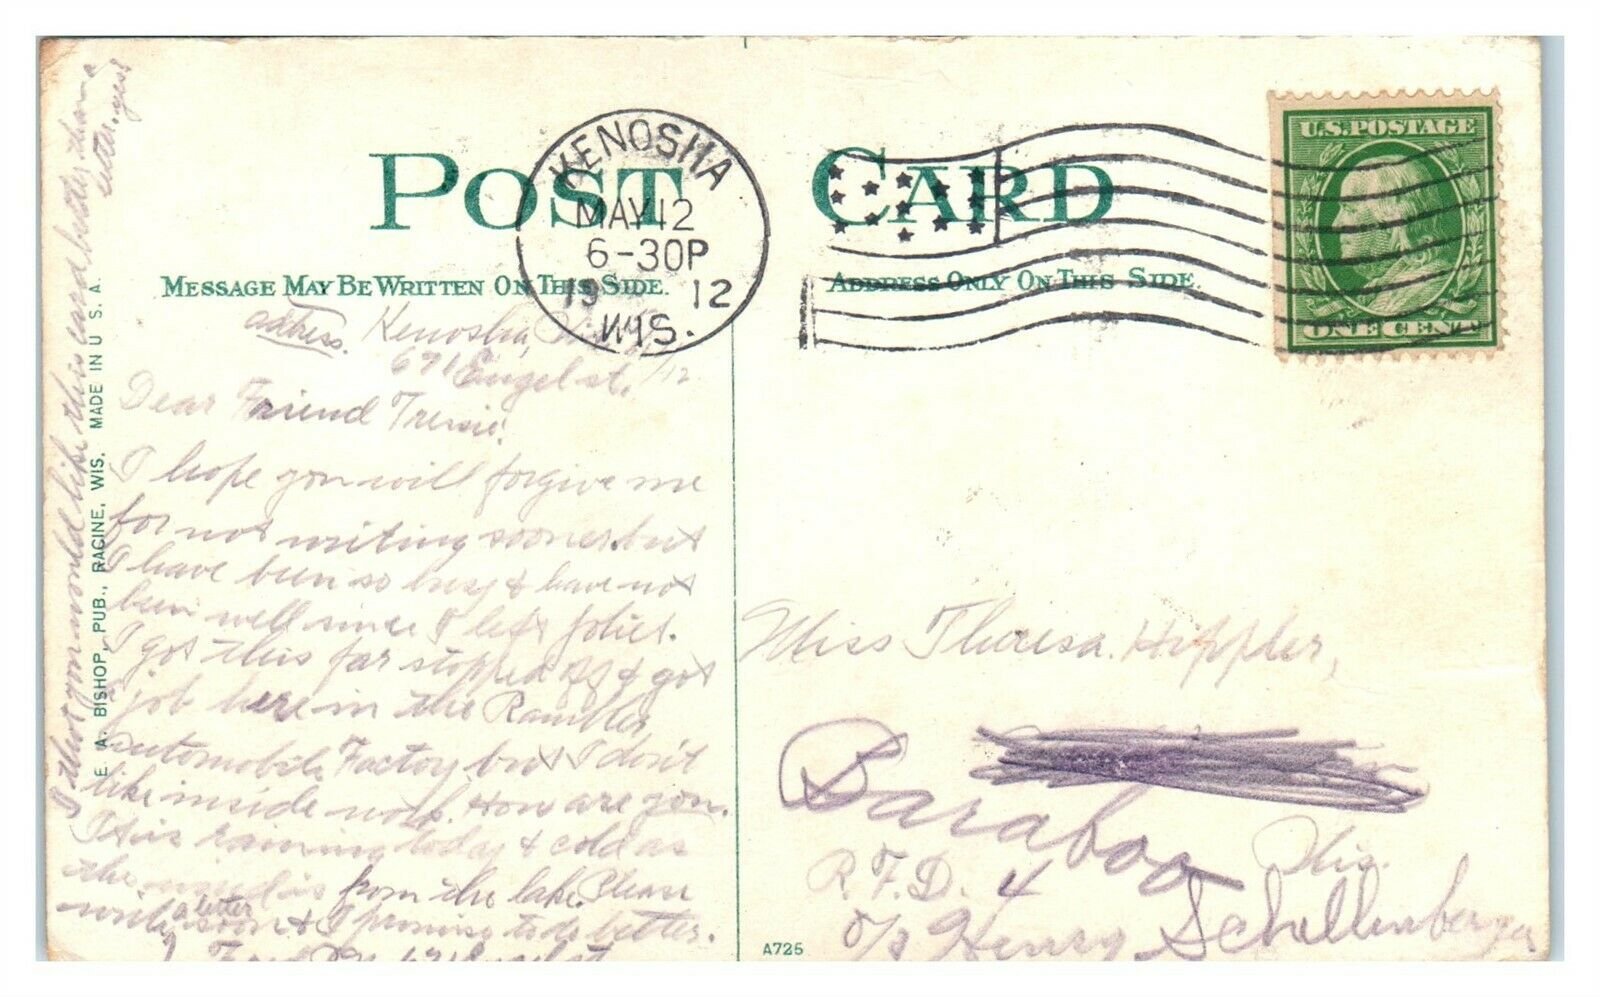 POST CARD
MESSAGE MAY BE WRITTEN ON THIS SIDE.
ADDRESS ONLY ON THIS SIDE.
KENOSHA
MAY 12
6-30P
19 12
WIS.
U.S. POSTAGE
ONE CENT
Adress. Kenosha,
671 Engel st. /12
Dear Friend Tressie!
I hope you will forgive me
for not writing sooner but
I have been so busy & have not
been well since I left Joliet.
I got this far stopped off & got
a job here in the Rambler
automobile Factory but I don't
like inside work. How are you.
It is raining today & cold as
the wind is from the lake. Please
write a letter soon & I promise to do better.
671 Engel st
I thot you would like this card better than a
letter. yes?
E. A. BISHOP, PUB., RACINE, WIS. MADE IN U S. A.
Miss Theresa Hippler,
Baraboo
Wis.
R. F. D. 4
c/o Henry Schellenberger
A725